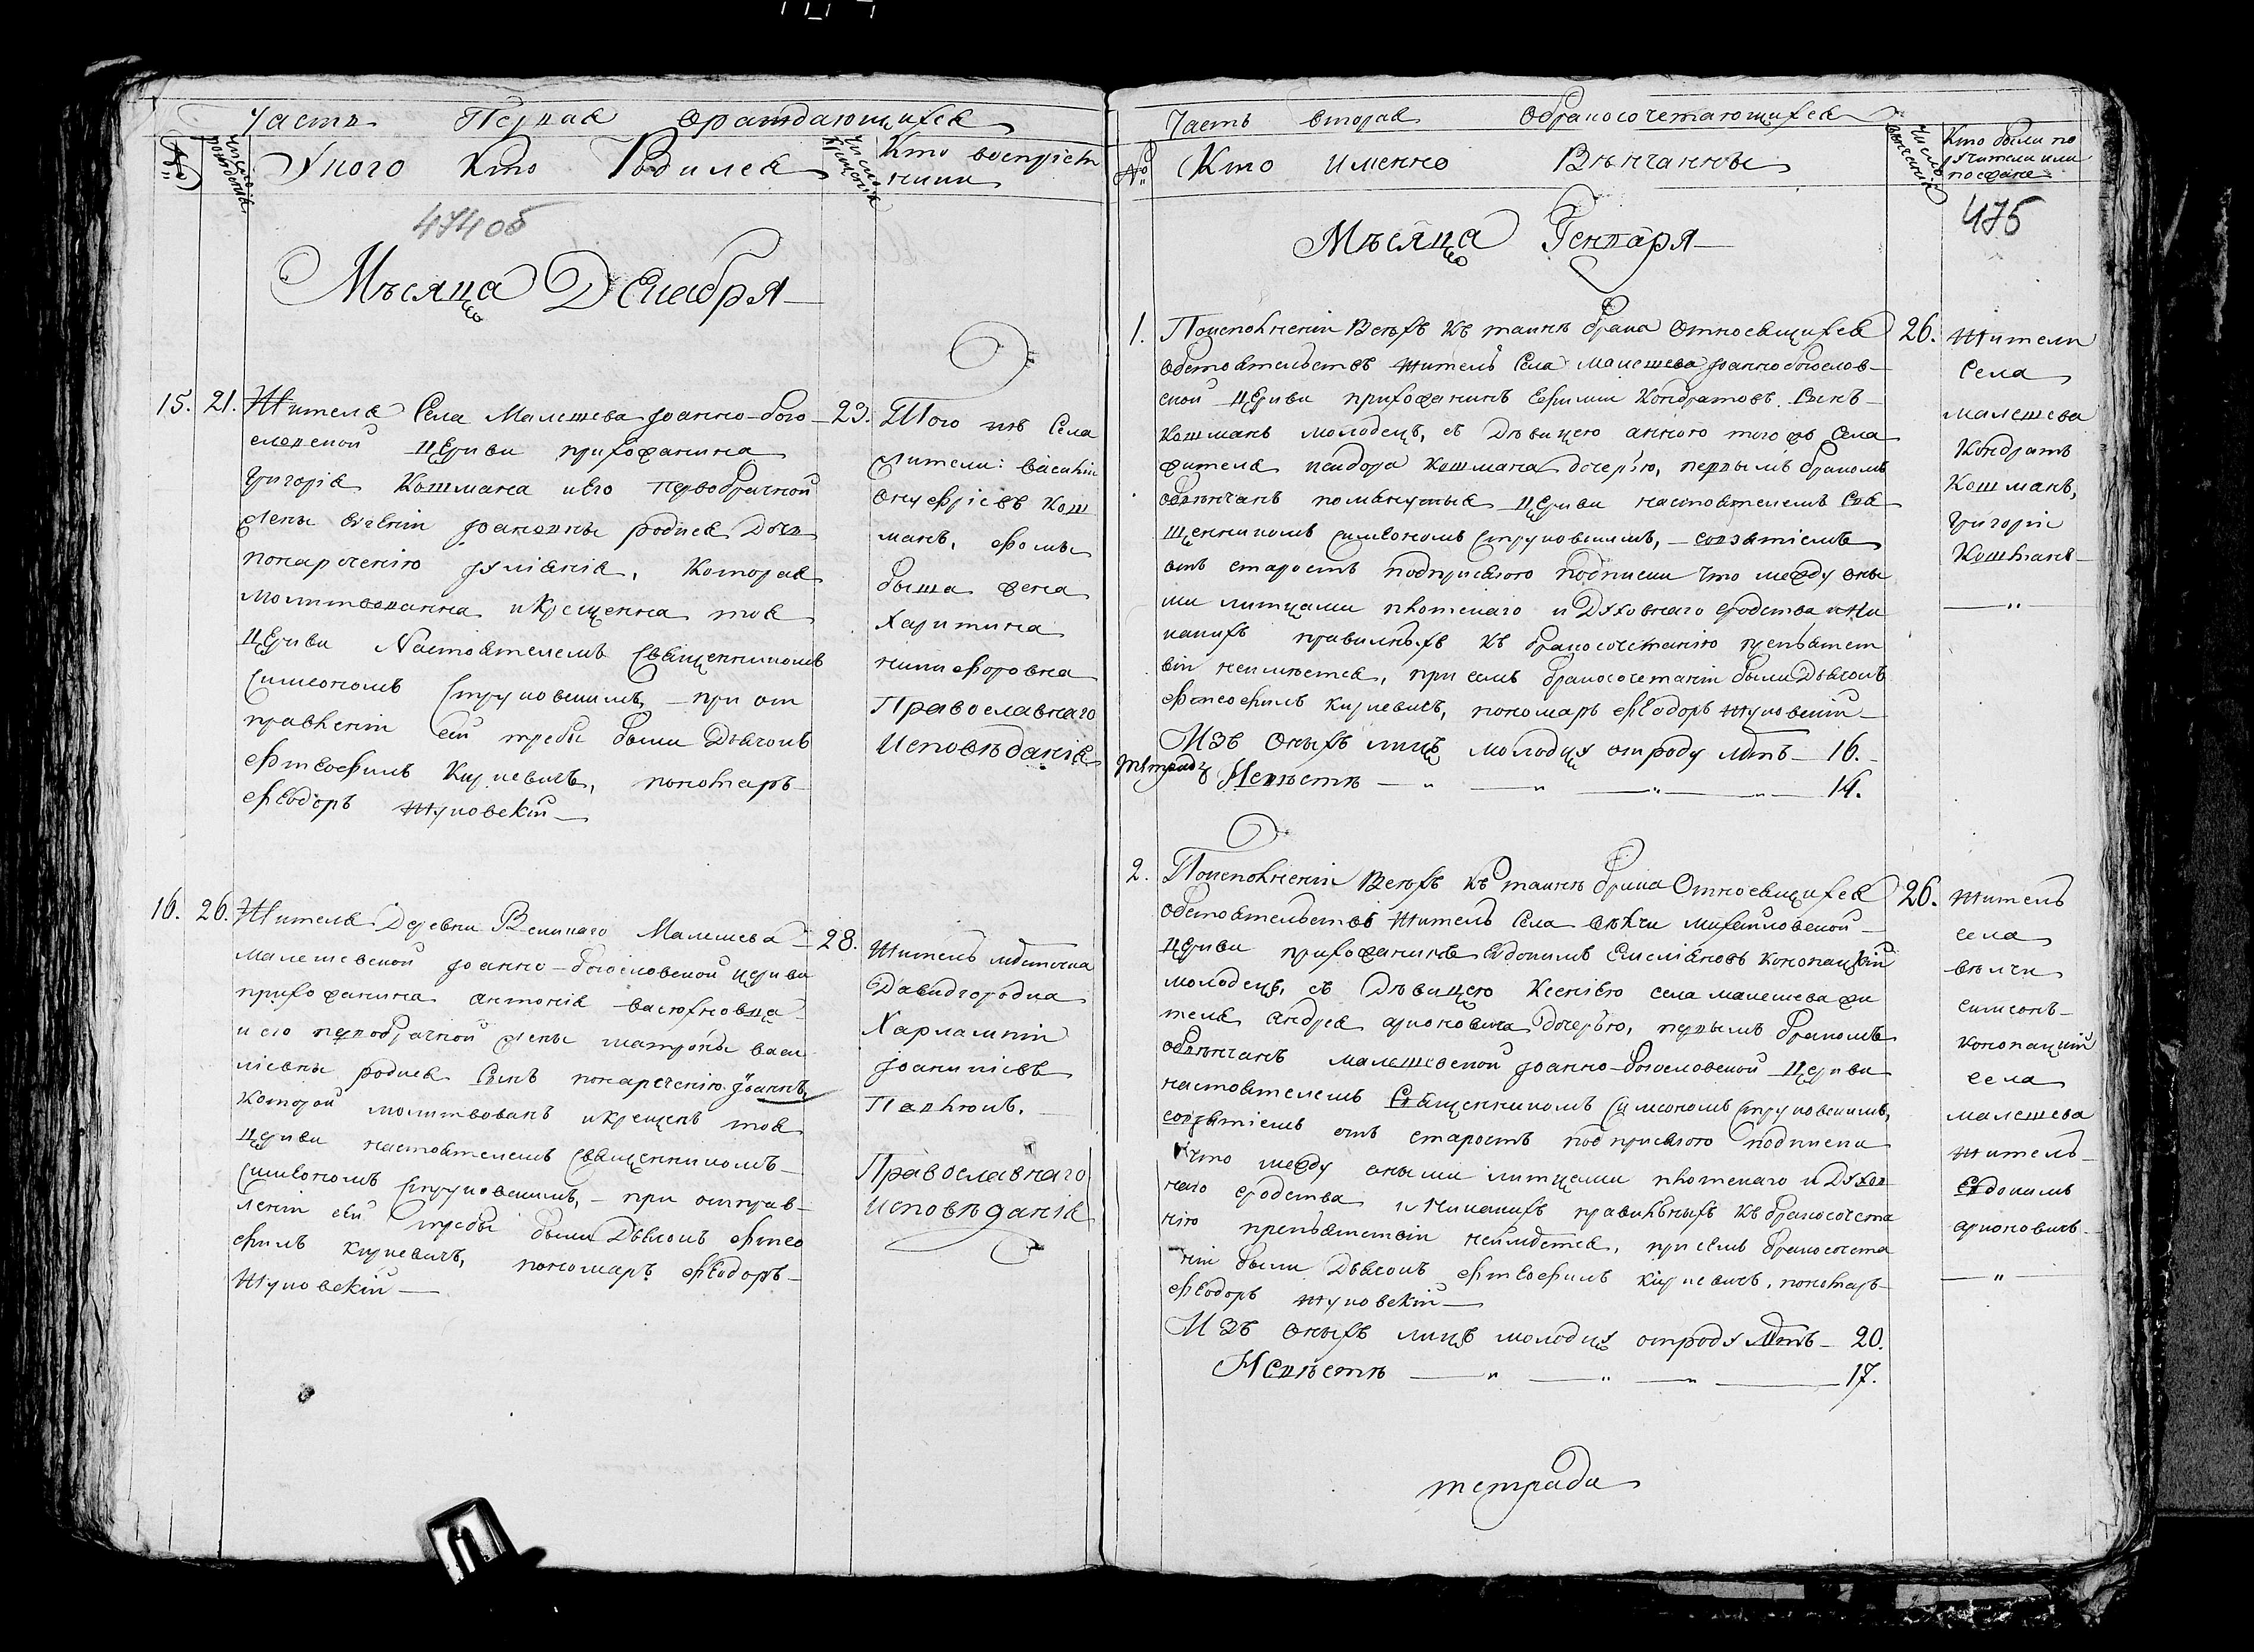 Часть Первая Ораждающихся
№
число рождения
У кого кто Родился
число крещения
Кто восприем
ники
474об
Мѣсяца Декабря
15. 21. Жителя Села Малешева Іоанно-бого
словской церкви прихожанина
Григорія Кошмана и его первобрачной
жены Іоанновны родися Дочь
понареченію Іуліанія, Которая
молитвованна и крещенна тоя
церкви Настоятелемъ Священникомъ
Симеономъ Струковскимъ, – при от
правленіи сей требы были Дьячокъ
Фтеофилъ Кирневичъ, пономарь
Феодоръ Жуковскій
23. Того жъ Села
жители: Василій
Онуфріевъ Кош
манъ, Фомы
бывша жена
Харитина
никифоровна
Православнаго
Исповѣданія
16. 26. Жителя Деревни Великаго Малешева
малешевской Іоанно-богословской церкви
прихожанина антонія васюхновца
и его первобрачной жены матроны васи
ліевны родися Сынъ понареченію Іоаннъ,
Которой молитвованъ и крещенъ тоя
церкви настоятелемъ Священникомъ
Симеономъ Струковскимъ, – при отправ
леніи сей требы были Дьячокъ фтео
филъ Кирневичъ, пономарь Феодоръ
Жуковскій
28. Житель мѣстечка
Давидгородка
Харлампій
Іоанникіевъ
Православнаго
Исповѣданія
Часть вторая обракосочетающихся
№
Кто именно Вѣнчанны
число вѣнчанія
Кто были по
ручители или
поезжане
475
Мѣсяца Генваря
1. Поисполненіи Всѣхъ къ таинѣ брака Относящихся
обстоятельствъ житель Села малешева Іоаннобогослов
ской церкви прихожанинъ Ефимій Кондратовъ Сынъ
Кошманъ молодецъ, съ Дѣвицею анною того жъ Села
жителя исидора Кошмана дочерью, первымъ бракомъ
обвѣнчанъ помянутыя церкви настоятелемъ Свя
щенникомъ Симеономъ Струковскимъ, – совзятіемъ
отъ старостъ подприсягою подписки что между оны
ми литцами плотскаго и Духовнаго сродства и ни
какихъ правилныхъ къ бракосочетанію препятст
вій неимѣется, при семъ бракосочетаніи были Дьячокъ
Фтеофилъ Кирневичъ, пономарь Феодоръ Жуковскій
Изъ оныхъ лицъ молодцу отроду лѣтъ – 16.
Невѣстѣ – " – " – " – " – 14.
26. Жители
Села
малешева
Кондратъ
Кошманъ,
Григорій
Кошманъ
2. Поисполненіи Всѣхъ къ таинѣ брака Относящихся
обстоятельствъ житель Села вѣлчи михайловской
церкви прихожанинъ Евдокимъ Емелianовъ конопацкій
молодецъ, съ Дѣвицею Ксеніею села малешева жи
теля андрея арионовича дочерью, первымъ бракомъ
обвѣнчанъ малешевской Іоанно-богословской церкви
настоятелемъ Священникомъ Симеономъ Струковскимъ,
созятіемъ отъ старостъ подприсягою подписки
что между оными литцами плотскаго и Духов
наго сродства и никакихъ правильныхъ къ бракосочета
нію препятствій неимѣется, при семъ бракосочета
ніи были Дьячокъ Фтеофилъ Кирневичъ, пономарь
Феодоръ Жуковскій
Изъ оныхъ лицъ молодцу отроду лѣтъ – 20.
Невѣстѣ – " – " – " – 17.
26. житель
села
вѣлчи
симеонъ
конопацкій
села
малешева
житель
Евдокимъ
арионовичъ
тетради